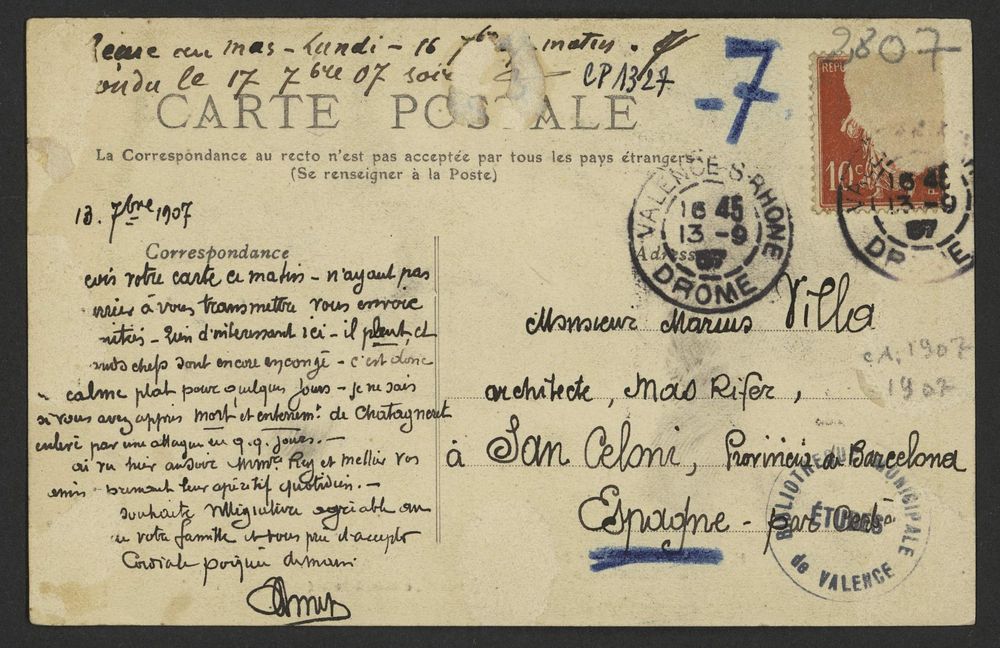 au mas - Lundi - 16 7bre matin.
le 17 7bre 07 soir
CP1327
-7
2807
CARTE POSTALE
La Correspondance au recto n'est pas acceptée par tous les pays étrangers
(Se renseigner à la Poste)
REPU
10c
VALENCE-S-RHONE
16 45
13 -9
07
DROME
16 45
13 -9
07
13. 7bre 1907
Correspondance
Adresse
votre carte ce matin - n'ayant pas
à vous transmettre vous envoie
Rien d'intéressant ici - il pleut et
nos chefs sont encore en congé - c'est donc
calme plat pour quelques jours - je ne sais
si vous avez appris mort et enterremt de Chatagneret
enlevé par une attaque en q.q. jours. -
ai vu hier au soir Rey et Mellier vos
amis - prenant leur apéritif quotidien. -
souhaite villégiature agréable
votre famille et vous prie d'accepter
Cordiale poignée de main
Monsieur Marius Villa
architecte, Mas Rifer,
à San Celoni, Provincia de Barcelona
Espagne - par
CA, 1907
1907
BIBLIOTHEQUE MUNICIPALE
de VALENCE
ÉTUDES